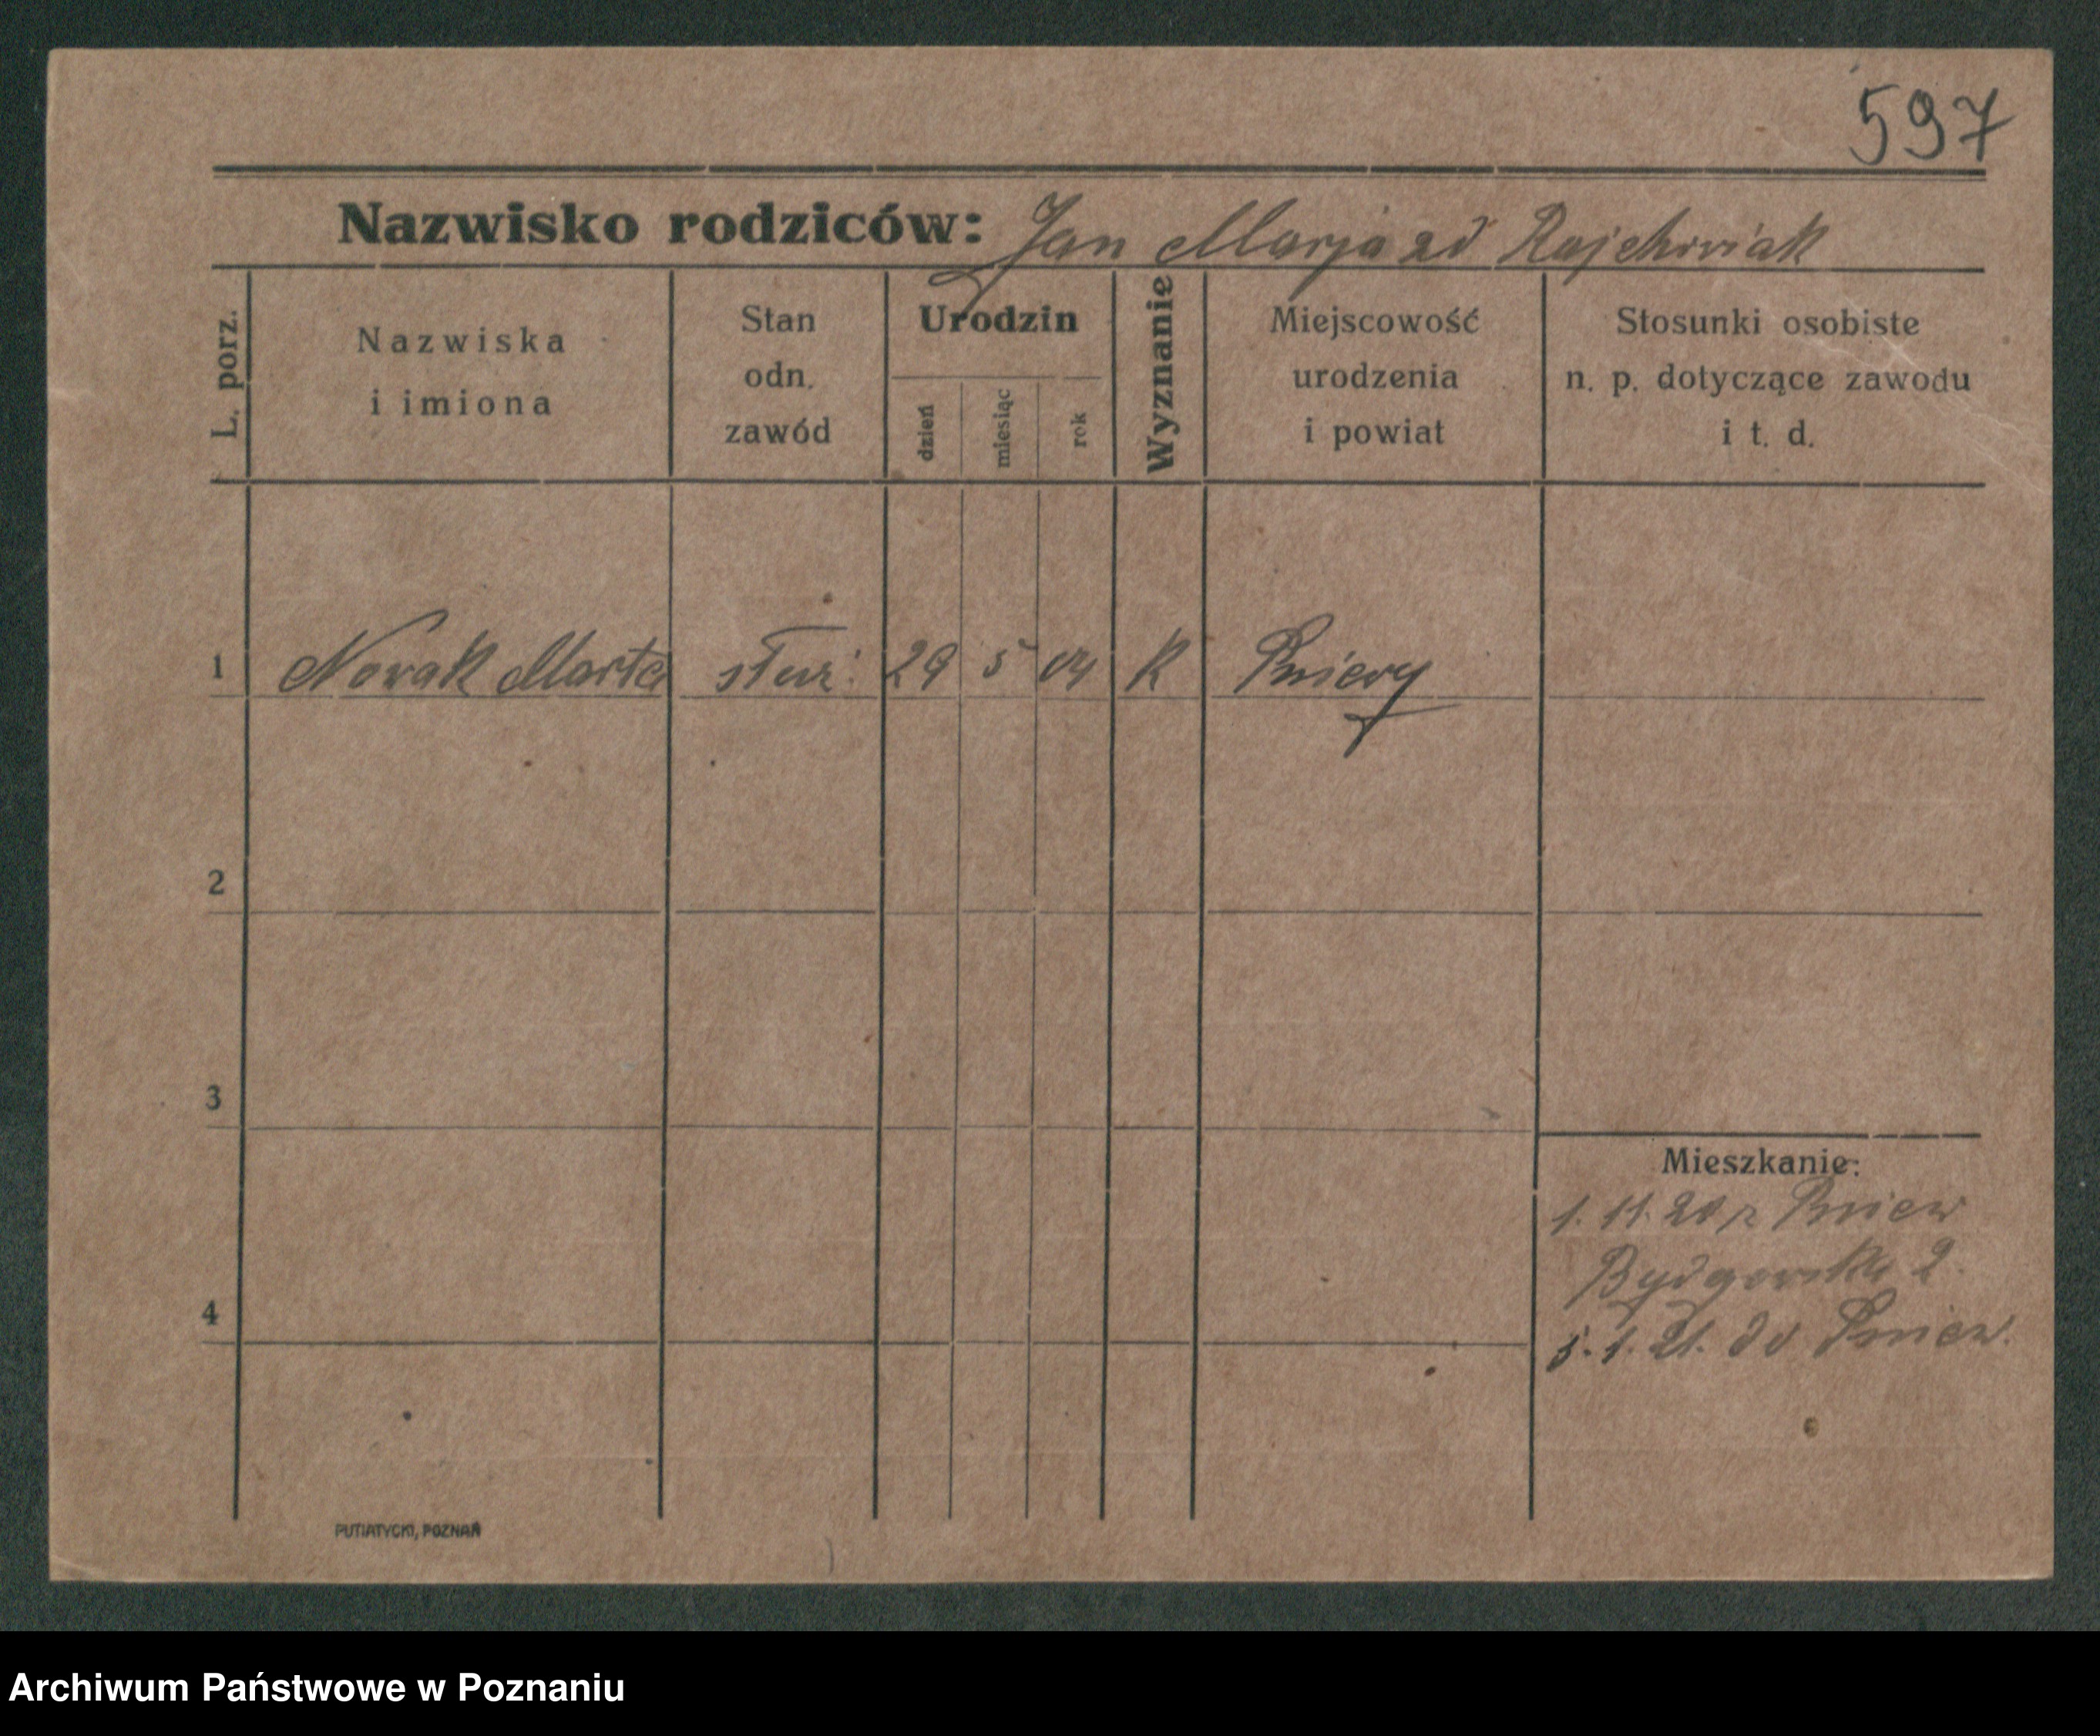 597
Nazwisko rodziców: Jan Marja zd Rajchwiak
L. porz.
Nazwiska i imiona
Stan odn. zawód
Urodzin
dzień
miesiąc
rok
Wyznanie
Miejscowość urodzenia i powiat
Stosunki osobiste n. p. dotyczące zawodu i t. d.
1 Nowak Marta służ. 29 5 04 K Pniewy
2
3
Mieszkanie:
1. 11. 20 z Pniew
Bydgoska 2.
4
5. 1. 21. do Pniew.
PUTIATYCKI, POZNAŃ
Archiwum Państwowe w Poznaniu